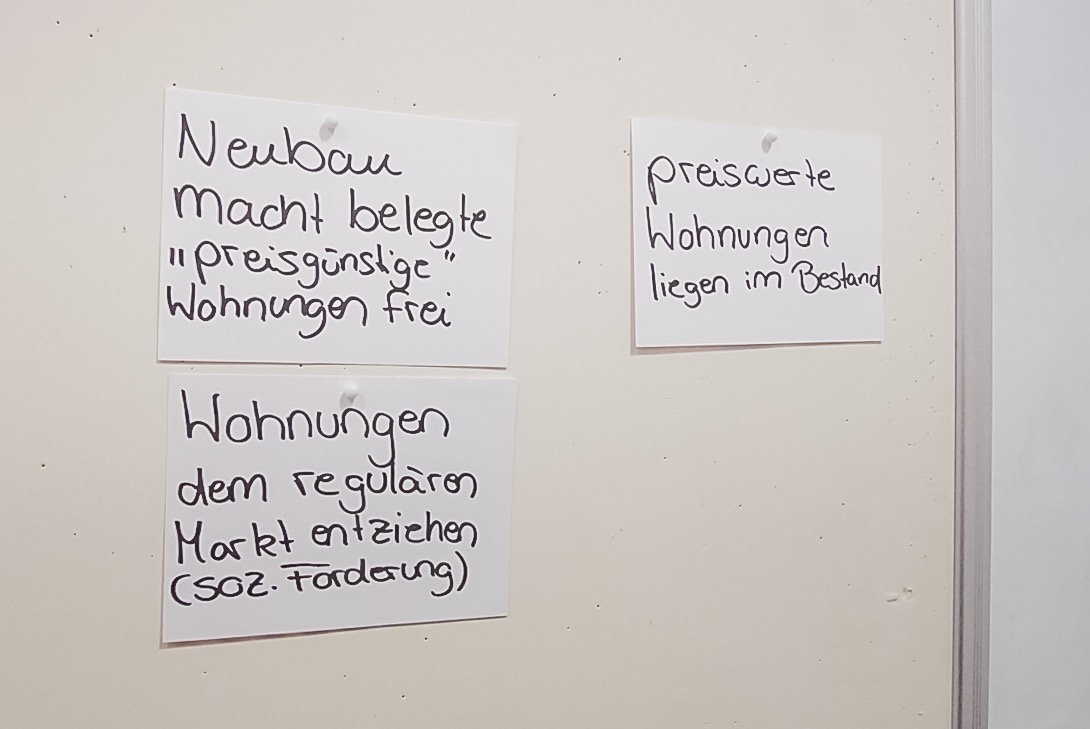 Neubau
macht belegte
"preisgünstige"
Wohnungen frei
Wohnungen
dem regulären
Markt entziehen
(soz. Förderung)
preiswerte
Wohnungen
liegen im Bestand